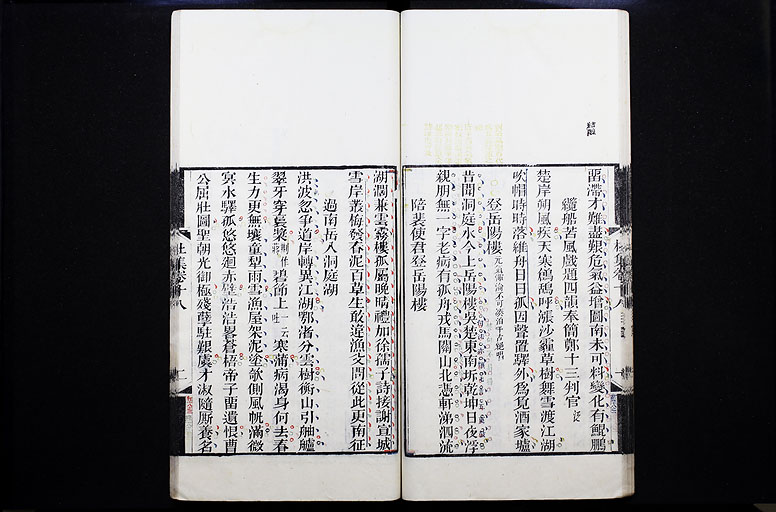 留滯才難盡艱危氣益增圖南未可料變化有鯤鵬
纜船苦風戲題四韻奉簡鄭十三判官泛
楚岸朔風疾天寒鶬鴰呼漲沙霾草樹舞雪渡江湖
吹帽時時落維舟日日孤因聲置驛外為覓酒家壚
登岳陽樓元氣渾淪不可湊泊千古絕唱
昔聞洞庭水今上岳陽樓吳楚東南坼乾坤日夜浮
親朋無一字老病有孤舟戎馬關山北憑軒涕泗流
陪裴使君登岳陽樓
湖闊兼雲霧樓孤屬晚晴禮加徐孺子詩接謝宣城
雪岸叢梅發春泥百草生敢違漁父問從此更南征
過南岳入洞庭湖
洪波忽爭道岸轉異江湖鄂渚分雲樹衡山引舳艫
翠牙穿裛槳碧節上寒蒲病渴身何去春
生力更無壤童犁雨雪漁屋架泥塗欹側風帆滿微
冥水驛孤悠悠迴赤壁浩浩畧蒼梧帝子留遺恨曹
公屈壯圖聖朝光御極殘孽駐艱虞才淑隨廝養名
杜集卷十八